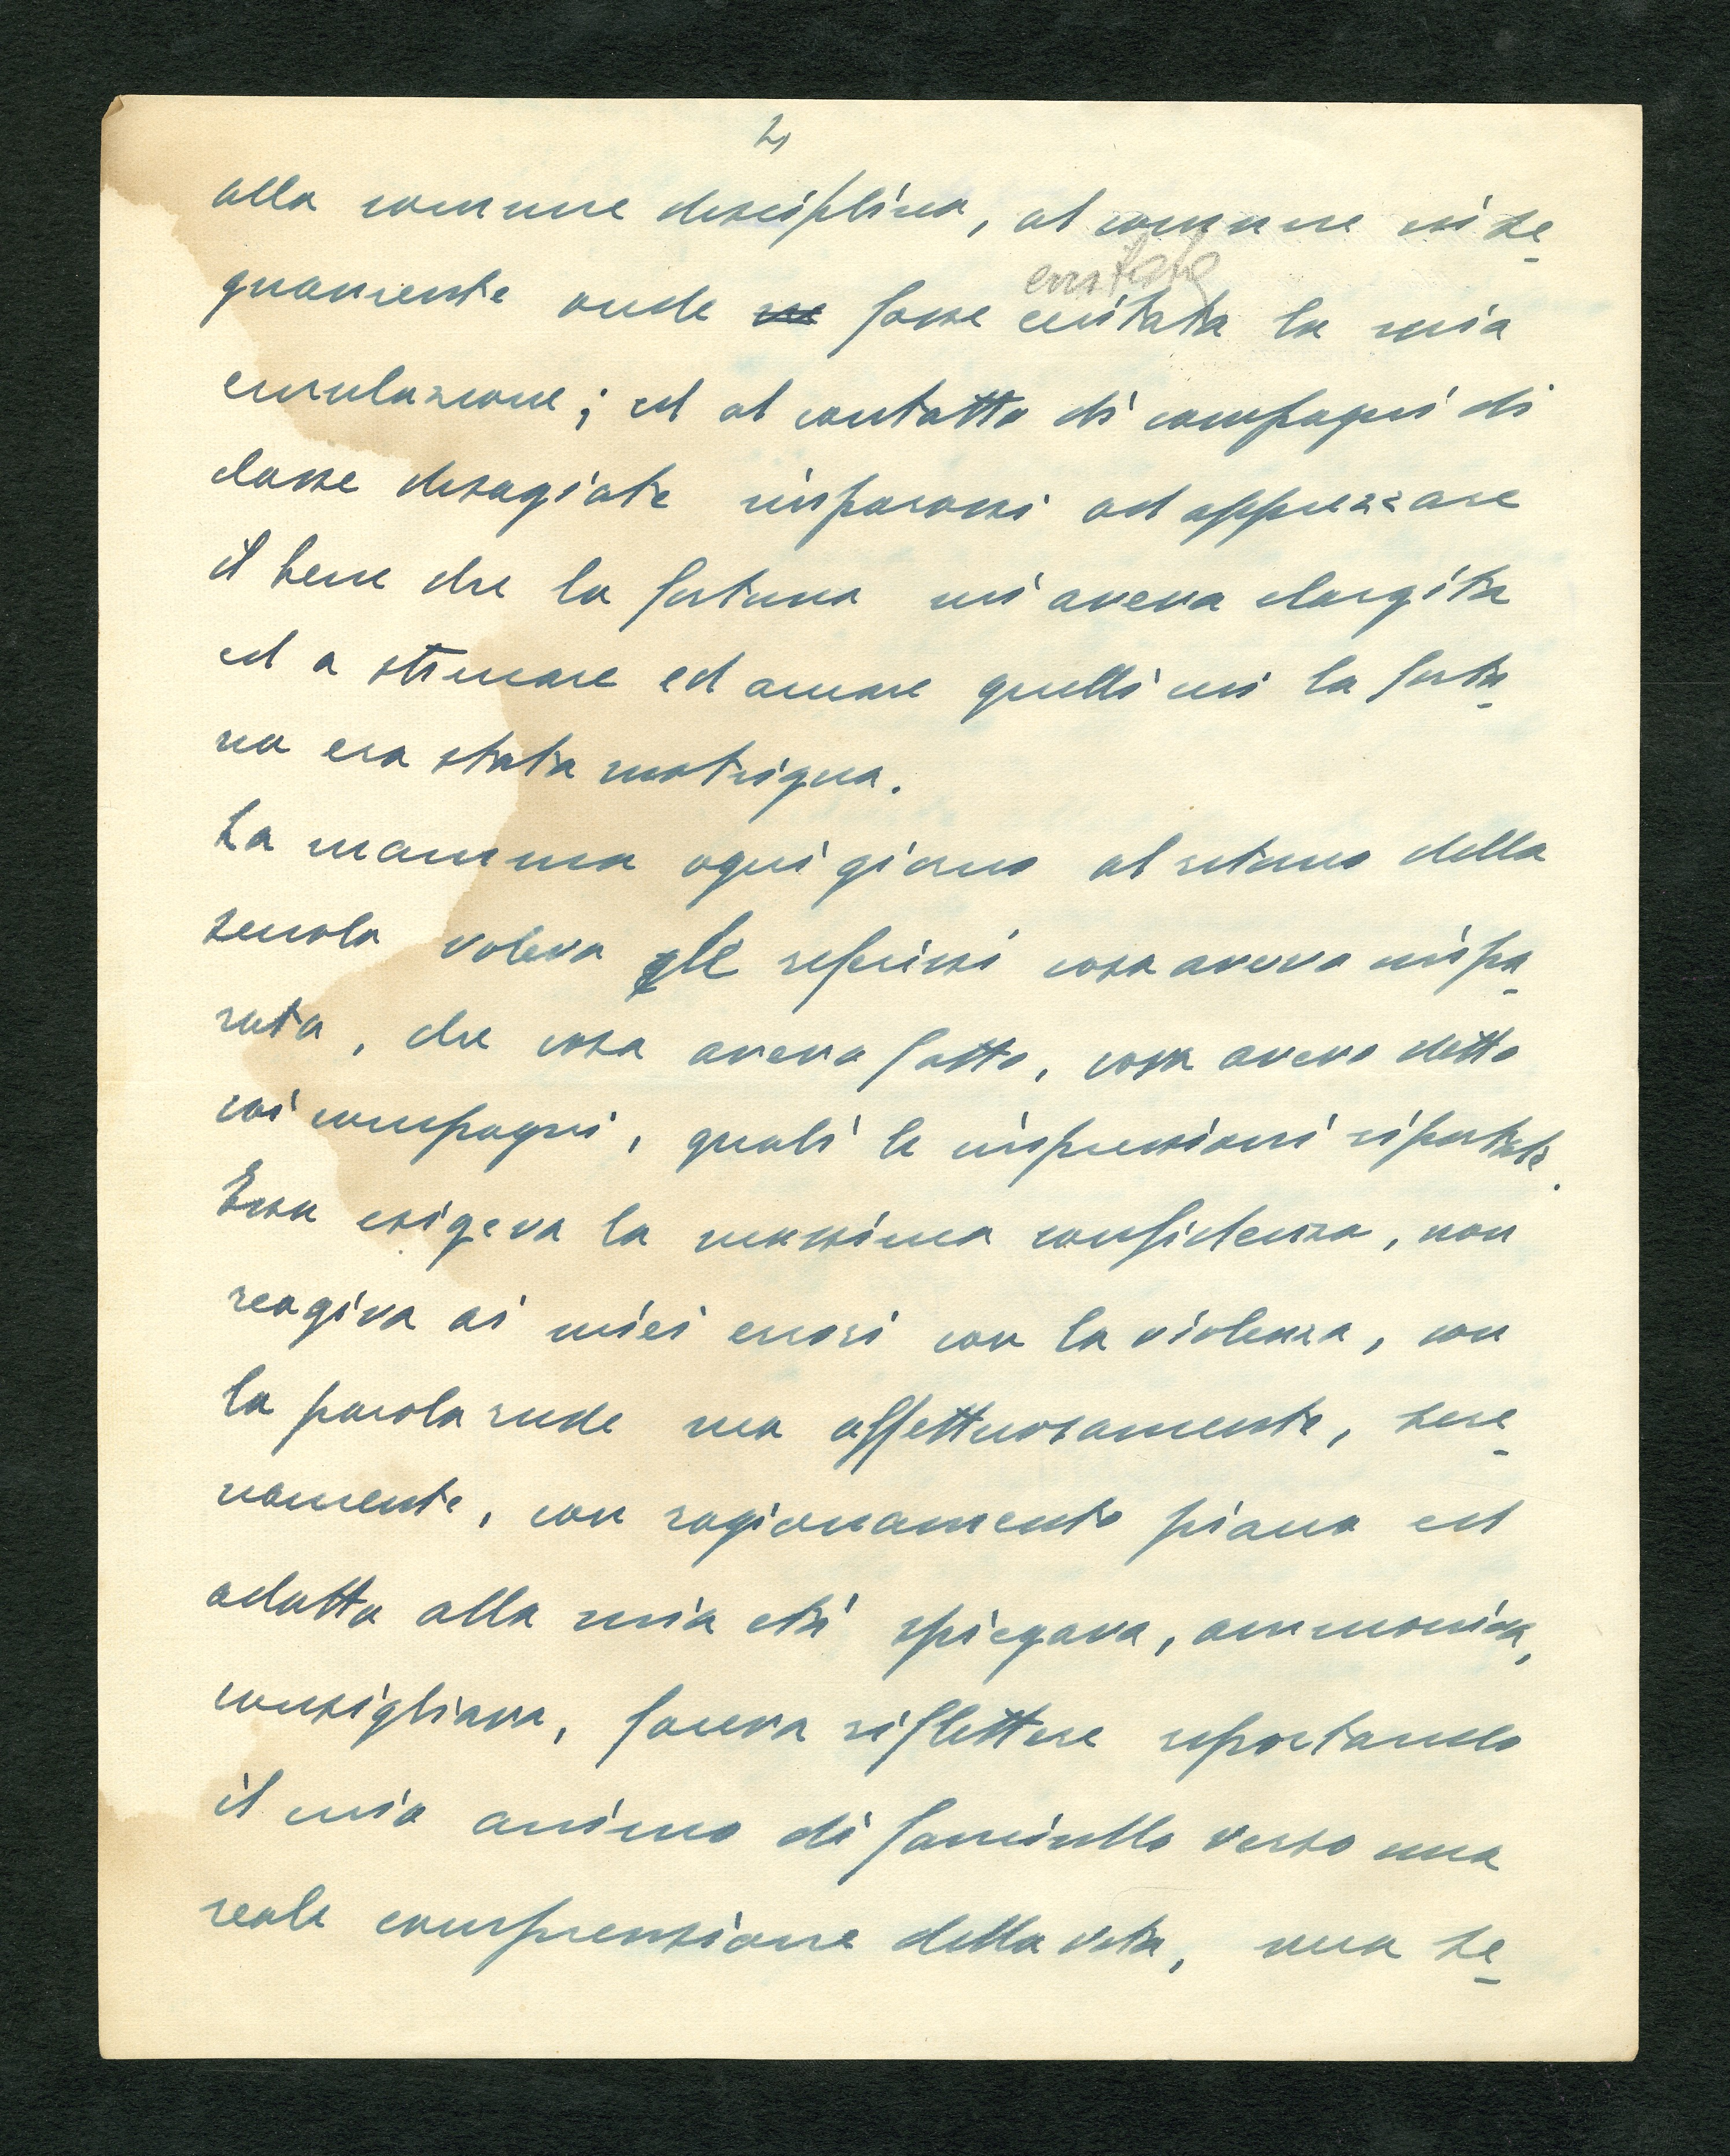 2
alla comune disciplina, al comune inse
gnamente onde fosse eccitata la mia
emulazione; ed al contatto di compagni di
classe disagiate imparassi ad apprezzare
il bene che la fortuna mi aveva elargito
ed a stimare ed amare quelli cui la fortu
na era stata matrigna.
La mamma ogni giorno al ritorno della
scuola voleva gle riferissi cosa aveva impa
rato, che cosa aveva fatto, cosa aveva detto
coi compagni, quali le impressioni riportate.
Essa esigeva la massima confidenza, non
reagiva ai miei errori con la violenza, con
la parola rude ma affettuosamente, sere
namente, con ragionamento piano ed
adatto alla mia età spiegava, ammoniva,
consigliava, faceva riflettere riportando
il mio animo di fanciullo verso una
reale comprensione della vita, una se